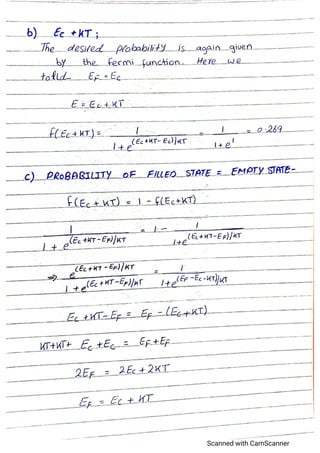 b) Ec + KT ;
The desired probability is again given
by the fermi function. Here we
told EF = Ec
E = Ec + KT
f(Ec + KT) = 1 / 1 + e^(Ec+KT-Ec)/KT = 1 / 1 + e^1 = 0.269
c) PROBABILITY OF FILLED STATE = EMPTY STATE-
f(Ec + KT) = 1 - f(Ec+KT)
1 / 1 + e^(Ec+KT-EF)/KT = 1 - 1 / 1+e^(Ec+KT-EF)/KT
⇒ e^(Ec+KT-EF)/KT / 1 + e^(Ec+KT-EF)/KT = 1 / 1+e^(EF-Ec-KT)/KT
Ec + KT - EF = EF - (Ec+KT)
KT+KT+ Ec + Ec = EF + EF
2EF = 2Ec + 2KT
EF = Ec + KT
Scanned with CamScanner